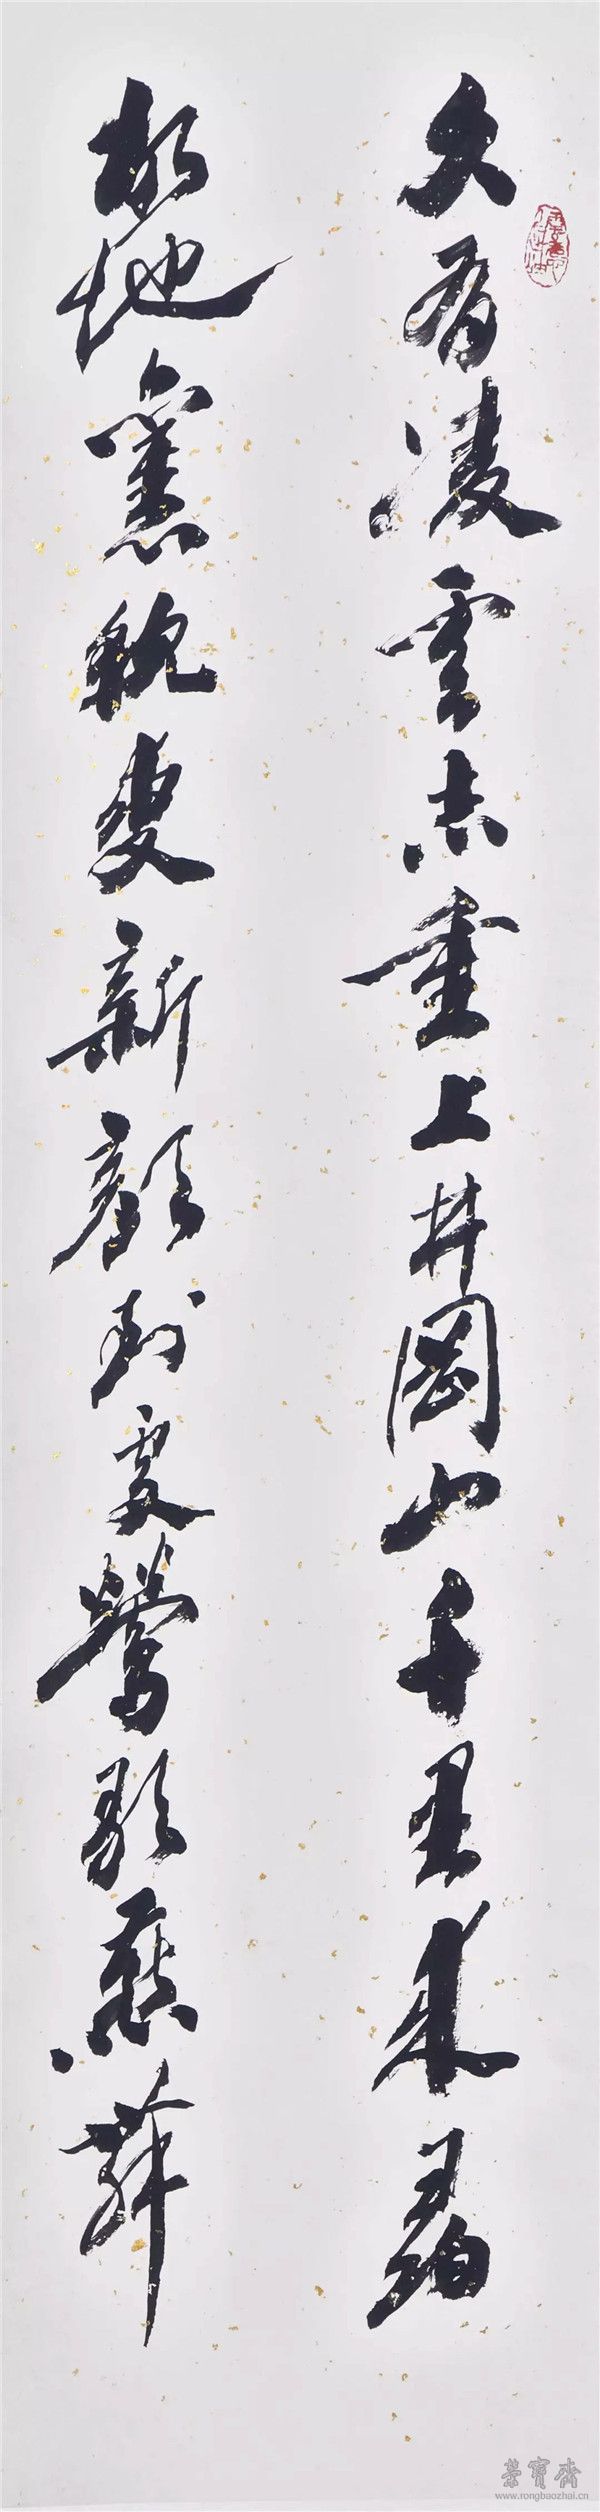 久有凌雲志重上井岡山千里来尋
故地舊貌變新顔到處鶯歌燕舞
榮寶齋
www.rongbaozhai.cn